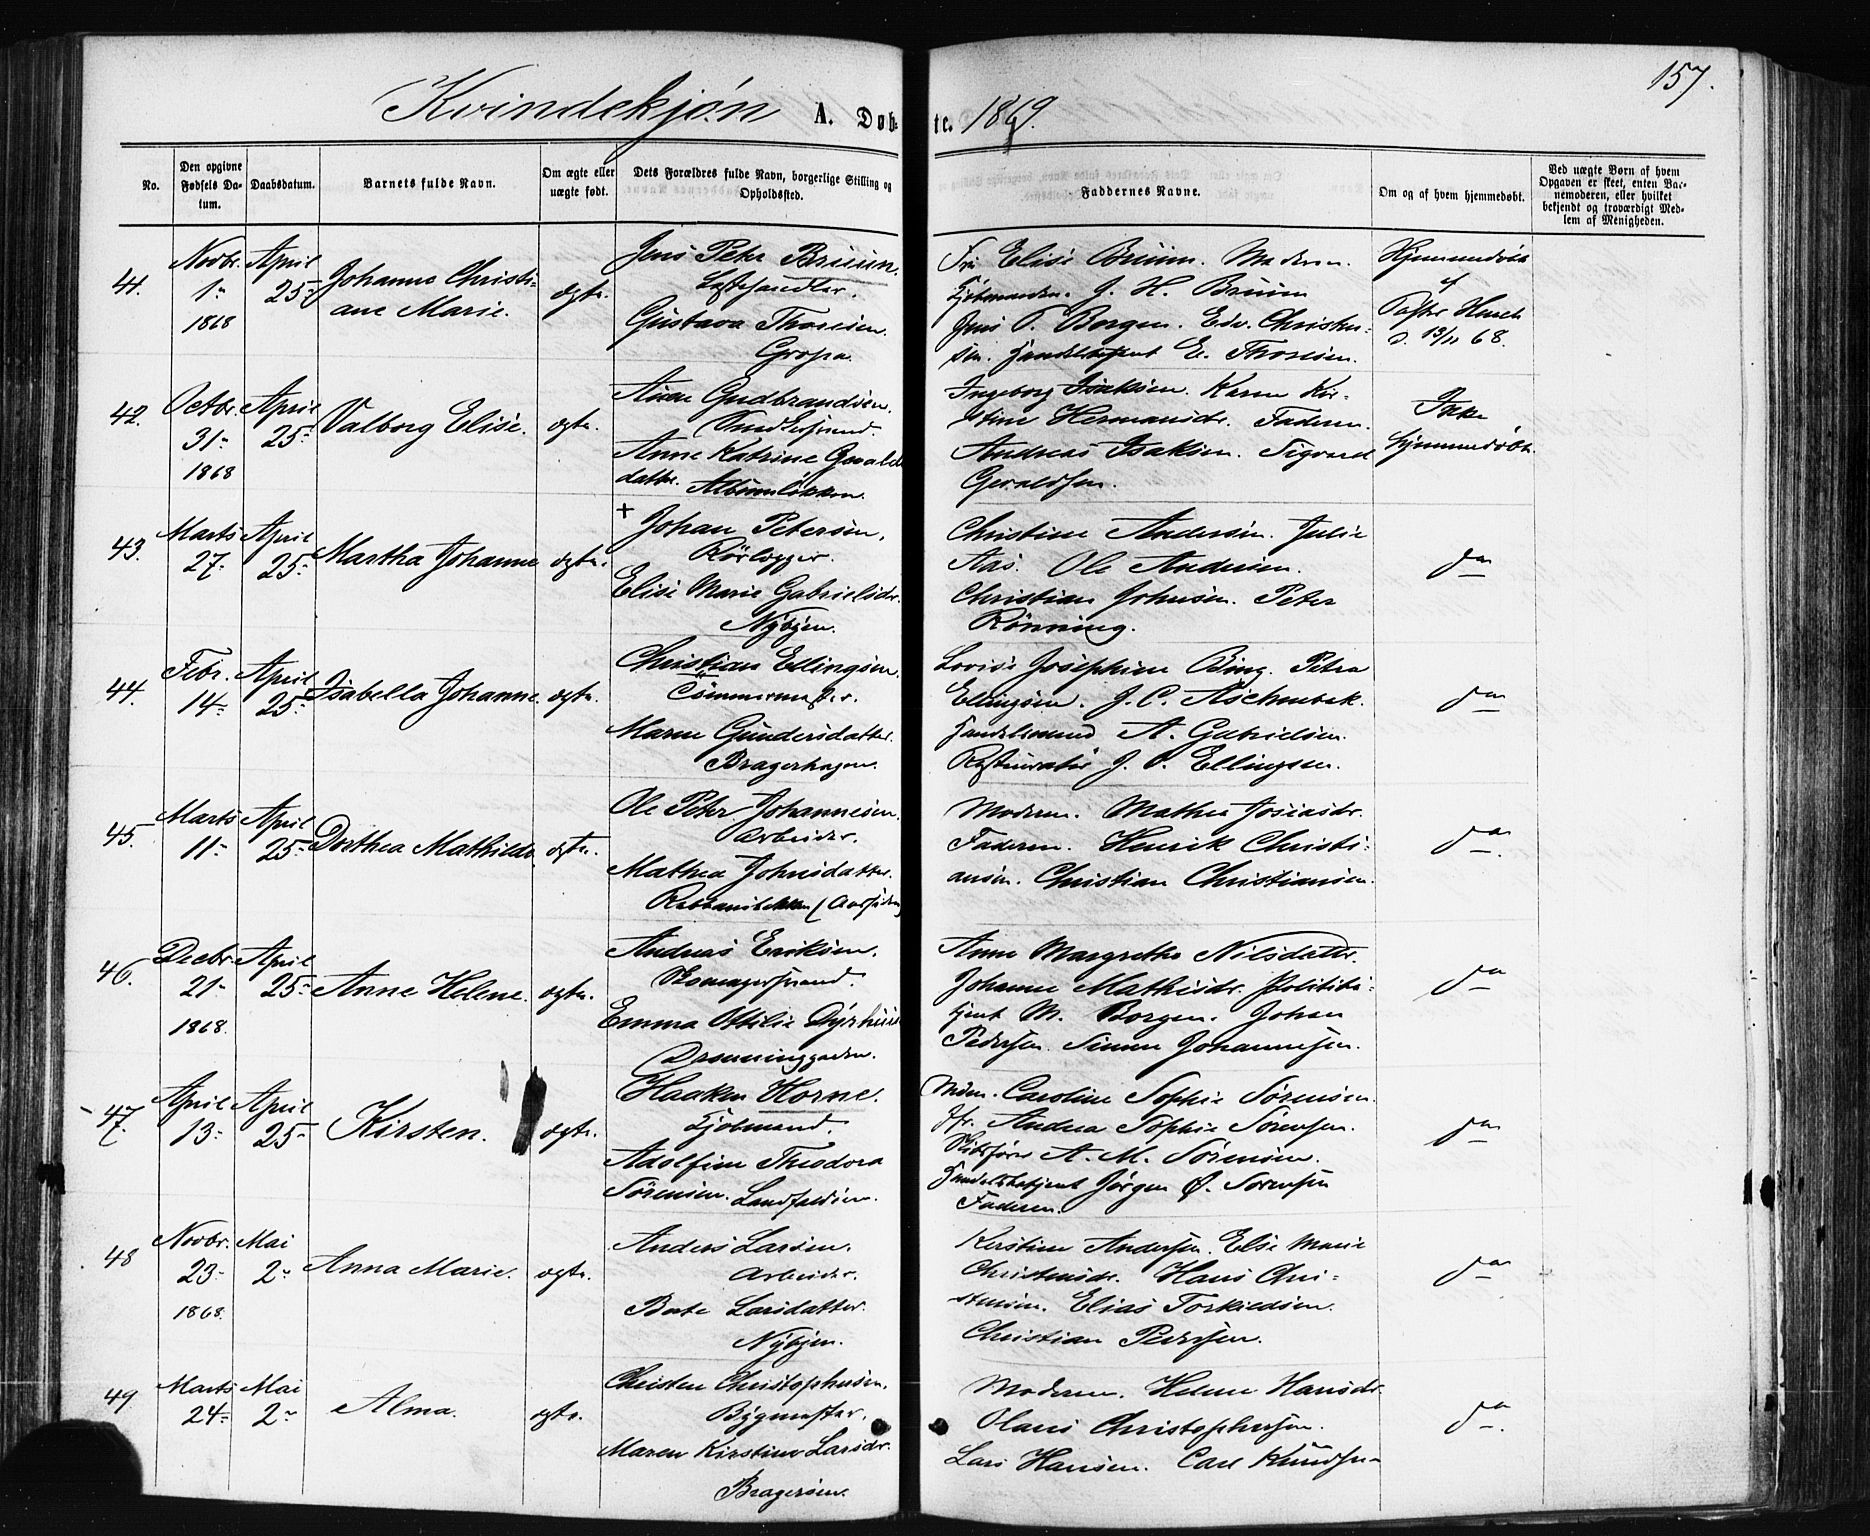 157.
Kvindekjøn A. Døbte. 1869.
No.
Den opgivne Fødsels Datum.
Daabsdatum.
Barnets fulde Navn.
Om ægte eller uægte født.
Dets Forældres fulde Navn, borgerlige Stilling og Opholdssted.
Faddernes Navne.
Om og af hvem hjemmedøbt.
Ved uægte Børn af hvem
Opgaven er skeet, enten Bar-
nemoderen, eller hvilket
bekjendt og troværdigt Med-
lem af Menigheden.
41.
Novbr. 1- 1868
April 25-
Johanne Christi-
ane Marie.
ægte.
Jens Peter Bruun.
Gustava Thoresen.
Elise Bruun. Moderen.
Kjøbmanden. J. H. Bruun
Jens P. Borgen. Edv. Christen-
sen. Handelsbetjent E. Thoresen.
Hjemmedøbt
af
13/11 68.
42.
Octbr. 31- 1868
April 25-
Valborg Elise.
ægte.
Gudbrandsen.
Anne Katrine
datter.
Ingeborg Isaksen. Karen Kir-
stine Hermansdr. Faderen.
Andreas Isaksen. Sigvard
Geraldsen.
Ikke
hjemmedøbt.
43.
Marts 27-
April 25-
Martha Johanne
ægte.
+
Johan Petersen,
Rörlegger.
Elise Marie Gabrielsdr.
Nybyen.
Christine Andersen. Julie
Aas. Ole Andersen.
Christian Johnsen. Peter
Rönning.
do
44.
Febr. 14-
April 25-
Isabella Johanne.
ægte.
Christian Ellingsen.
Tömmermester.
Maren Gundersdatter.
Bragerhagen.
Lovise Josephine Bing. Petra
Ellingsen. J. C.
Handelsmand A. Gabrielsen.
Restauratør J. P. Ellingsen.
do
45.
Marts 11-
April 25-
Dorthea Mathilde
ægte.
Ole Peter Johannesen.
Arbeider.
Mathea Johnsdatter.
Moderen. Mathea Josiasdr.
Faderen. Henrik Christi-
ansen. Christian Christiansen.
do.
46.
Decbr 21- 1868.
April 25-
Anne Helene.
ægte.
Andreas Eriksen.
Skomagersvend.
Emma Ottilie Dyrhuus
Anne Margrethe Nilsdatter.
Johanne Mathisdr. Politibe-
tjent M. Borgen. Johan
Pedersen. Simen Johannesen.
do
47.
April 13-
April 25-
Kirsten.
ægte.
Haaken Horne.
Kjøbmand.
Adolfine Theodora
Sörensen. Landfaldöen.
Mdm. Caroline Sophie Sörensen.
Jfr. Andrea Sophie Sörensen.
Skibsfører A. M. Sörensen.
Handelsbetjent Jörgen Ø. Sörensen
Faderen.
do
48
Novbr. 23- 1868.
Mai 2-
Anna Marie.
ægte.
Anders Larsen.
Arbeider.
Berte Larsdatter.
Nybyen.
Kirstine Andersen. Else Marie
Christensdr. Hans Chri-
stensen. Elias Torkildsen.
Christian Pedersen.
do
49
Marts 24-
Mai 2-
Alma.
ægte.
Christen Christophersen.
Bygmester.
Maren Kirstine Larsdr.
Bragerøen.
Moderen. Helene Hansdr.
Olaus Christophersen.
Lars Hansen. Carl Knudsen
do.